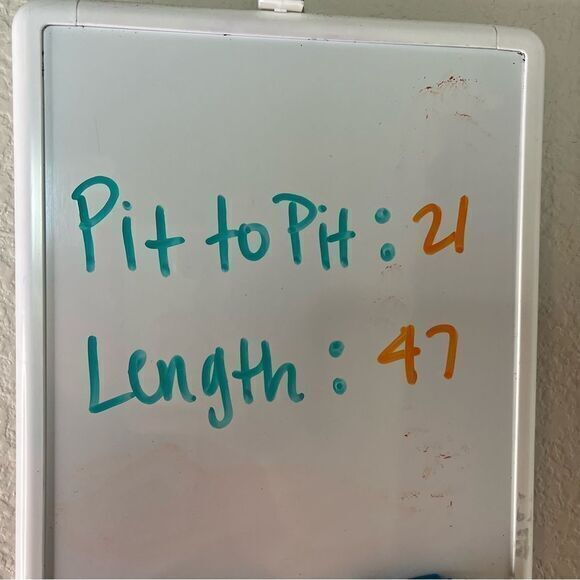 Pit to Pit: 21
Length: 47